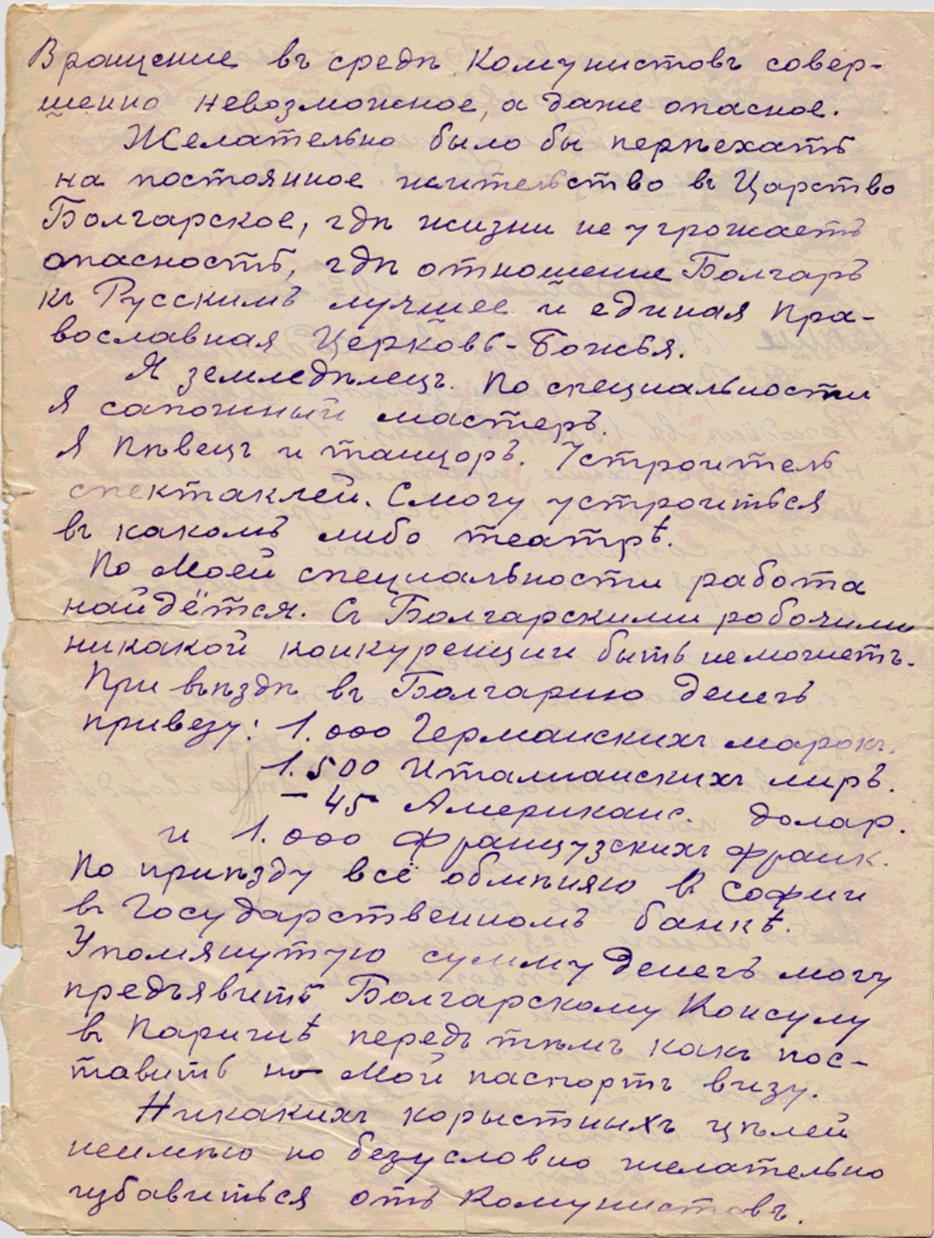 Вращение въ средѣ Комунистовъ совер-
шенно невозможное, а даже опасное.
Желательно было бы перѣехать
на постоянное жительство въ Царство
Болгарское, гдѣ жизни не угрожаетъ
опасность, гдѣ отношение Болгаръ
къ Русскимъ лучшее и единая Пра-
вославная Церковь-Божья.
Я земледѣлецъ. По специальности
я сапожный мастеръ.
Я пѣвецъ и танцоръ. Устроитель
спектаклей. Смогу устроиться
въ какомъ либо театрѣ.
По Моей специальности работа
найдётся. Съ Болгарскими робочими
никакой конкуренции быть неможетъ.
При въѣздѣ въ Болгарию денегъ
привезу: 1.000 Германскихъ марокъ.
1.500 Италианскихъ лиръ.
– 45 Американс. долар.
и 1.000 французскихъ франк.
По приѣзду всё обмѣняю в Софии
въ Государственномъ банкѣ.
Упомянутую сумму денегъ могу
предъявить Болгарскому Консулу
въ Парижѣ передъ тѣмъ какъ пос-
тавить на Мой паспортъ визу.
Никакихъ корыстныхъ цѣлей
неимѣю но безусловно желательно
избавиться отъ Комунистовъ.